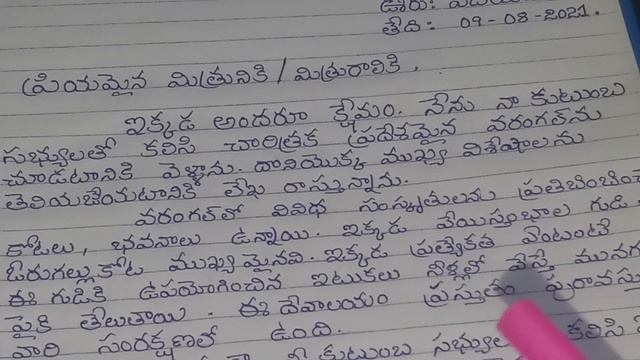 తేదీ: 09-08-2021.
ప్రియమైన మిత్రునికి / మిత్రురాలికి,
ఇక్కడ అందరూ క్షేమం. నేను నా కుటుంబ
సభ్యులతో కలిసి చారిత్రక ప్రదేశమైన వరంగల్‌ను
చూడటానికి వెళ్ళాను. దానియొక్క ముఖ్య విశేషాలను
తెలియజేయటానికి లేఖ రాస్తున్నాను.
వరంగల్‌లో వివిధ సంస్కృతులను
కోటలు, భవనాలు ఉన్నాయి. ఇక్కడ వేయిస్తంభాల గుడి,
ఓరుగల్లు కోట ముఖ్యమైనవి. ఇక్కడ ప్రత్యేకత ఏంటంటే
ఈ గుడికి ఉపయోగించిన ఇటుకలు నీళ్లలో వేస్తే
పైకి తేలుతాయి. ఈ దేవాలయం ప్రస్తుతం
వారి సంరక్షణలో ఉంది.
కుటుంబ కలిసి